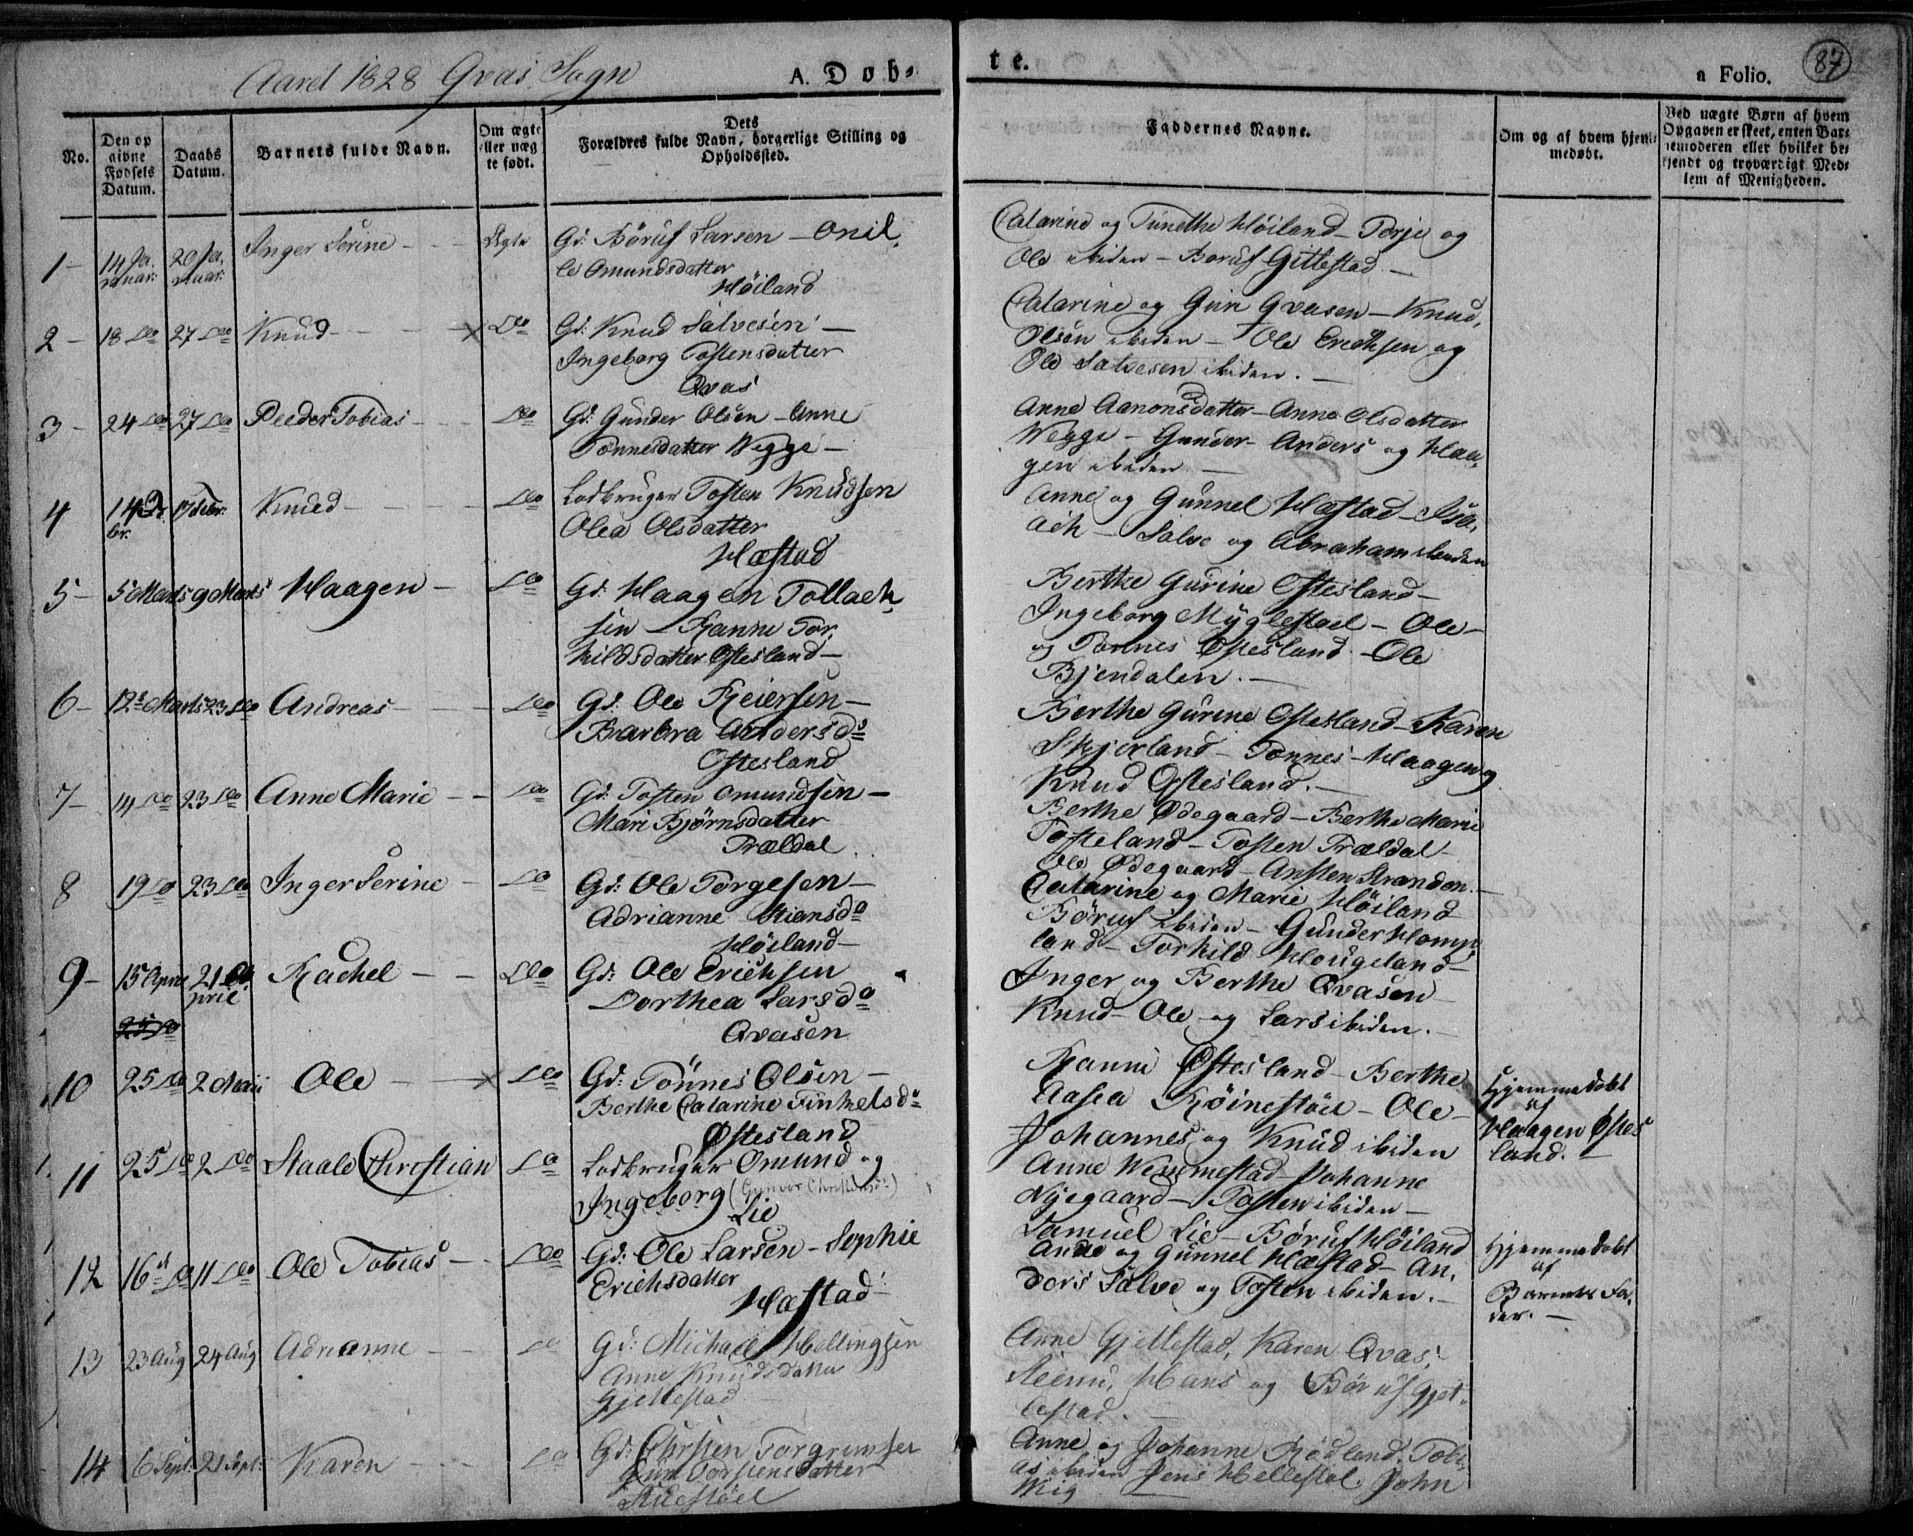 Aaret 1828 Qvas Sogn
A. Døb-
te.
a Folio.
87
No.
Den op
givne
Fødsels
Datum.
Daabs
Datum.
Barnets fulde Navn.
Om ægte
eller uæg
te født.
Dets
Forældres fulde Navn, borgerlige Stilling og
Opholdssted.
Faddernes Navne.
Om og af hvem hjem-
medøbt.
Ved uægte Børn af hvem
Opgaven er skeet, enten Bar-
nemoderen eller hvilket be-
kjendt og troværdigt Med-
lem af Menigheden.
1 - 14 Ja, nuar: 20 Ja, nuar: Inger Serine - Ægte Gd: Böruf Larsen - Onil,
le Omundsdatter
Höiland
Catarine og Tünethe Höiland - Torje og
Ole ibiden - Boruf Gitlestad -
2 - 18 do 27 do Knud - do Gd: Knud Salvesen -
Ingeborg Tostensdatter
Qvas
Catarine og Guri Qvasen - Knud,
Olsen ibiden - Ole Erichsen og
Ole Salvesen ibiden. -
3 - 24 do 27 do Peeder Tobias - do Gd: Gunder Olsen - Anne
Tönnesdatter Wegge -
Anne Aanonsdatter - Anne Olsdatter
Wegge - Gunder - Anders og Haa,
gen ibiden -
4 14 br. 17 Febr: Knud - do Lodbruger Tosten Knudsen
Olea Olsdatter
Hæstad
Anne og Gunnel Hæstad - Isa,
ach - Salve og Abraham ibiden
5 - 5 Marts 9 Marts Haagen - do Gd: Haagen Tollach,
sen - Ranni Tor,
kildsdatter Ostesland -
Berthe Gurine Ostesland -
Ingeborg Myglestoel - Ole -
og Tonnes Ostesland - Ole
Bjendalen. -
6 - 12 Marts 23 do Andreas - do Gd: Ole Reiersen -
Barbra Andersd
Ostesland
Berthe Gurine Ostesland - Karen
Skjerland - Tonnes - Haagen og
Knud Ostesland. -
7 - 14 do 23 do Anne Marie - do Gd: Tosten Omundsen -
Mari Björnsdatter
Trældal
Berthe Ødegaard - Berthe Marie
Tosteland - Tosten Trældal -
Ole Ødegaard - Ansten Stranden. -
8 19 do 23 do Inger Serine - do Gd: Ole Torgesen -
Adrianne Stiansd
Höiland -
Catarine og Marie Höiland
Böruf ibiden - Gunder Homp,
land - Torkild Hougeland -
9 - 15 April 21 A, pril Rachel - do Gd: Ole Erichsen
Dorthea Larsd
Qvasen
Inger og Berthe Qvasen
Knud - Ole - og Lars ibiden. -
10 25 do 2 Maii Ole - do Gd: Tönnes Olsen -
Berthe Catarine Finkelsd
Østesland
Ranni Østesland - Berthe
Aasea Röinestöel - Ole -
Johannes og Knud ibiden
Hjemmedöbt
af
Haagen Østes
land. -
11 25 do 2 do Staale Christian do Lodbruger Omund og
Ingeborg (Gunvor Christensd)
Lie
Anne Wemmestad - Johanne
Nyegaard - Tosten ibiden -
Samuel Lie - Böruf Höiland
12 16 do 11 do Ole Tobias - do Gd: Ole Larsen - Sophie
Erichsdatter
Hæstad
Anne og Gunnel Hæstad - An,
ders Salve og Tosten ibiden. -
Hjemmedöbt
af
Barnets Fa,
der. -
13 23 Aug 24 Aug Adrianne - do Gd: Michael Hellingsen
Anne Knudsdatter
Gjellestad
Anne Gjellestad, Karen Qvas,
Hans og Böruf Gjel,
lestad. -
14 6 Sept: 21 Sept: Karen - do Gd: Christen Torgrimsen
Guri Torstensdatter
Stuestöel
Anne og Johanne Rödland, Tobi,
as ibiden Jens Hellestöl. John
Wiig